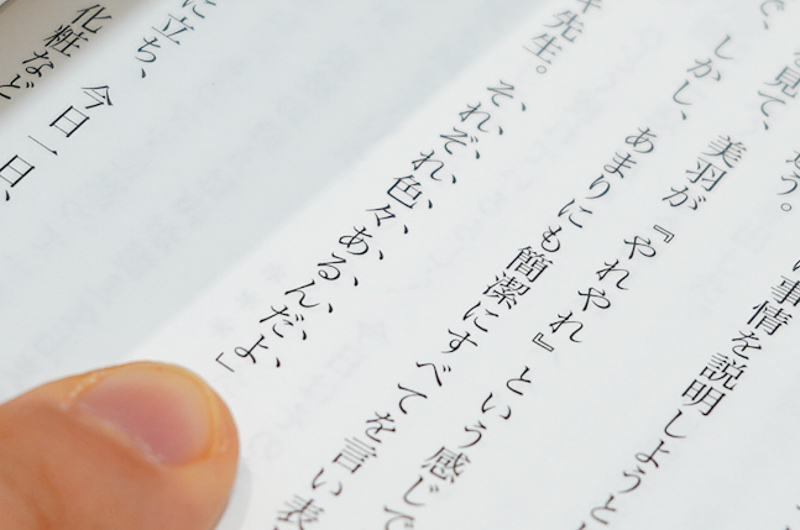 事情を説明しようと
う。
見て、美羽が『やれやれ』という感じで
で、しかし、あまりにも簡潔にすべてを言い表
先生。それぞれ色々あるんだよ」
に立ち、今日一日、
化粧など